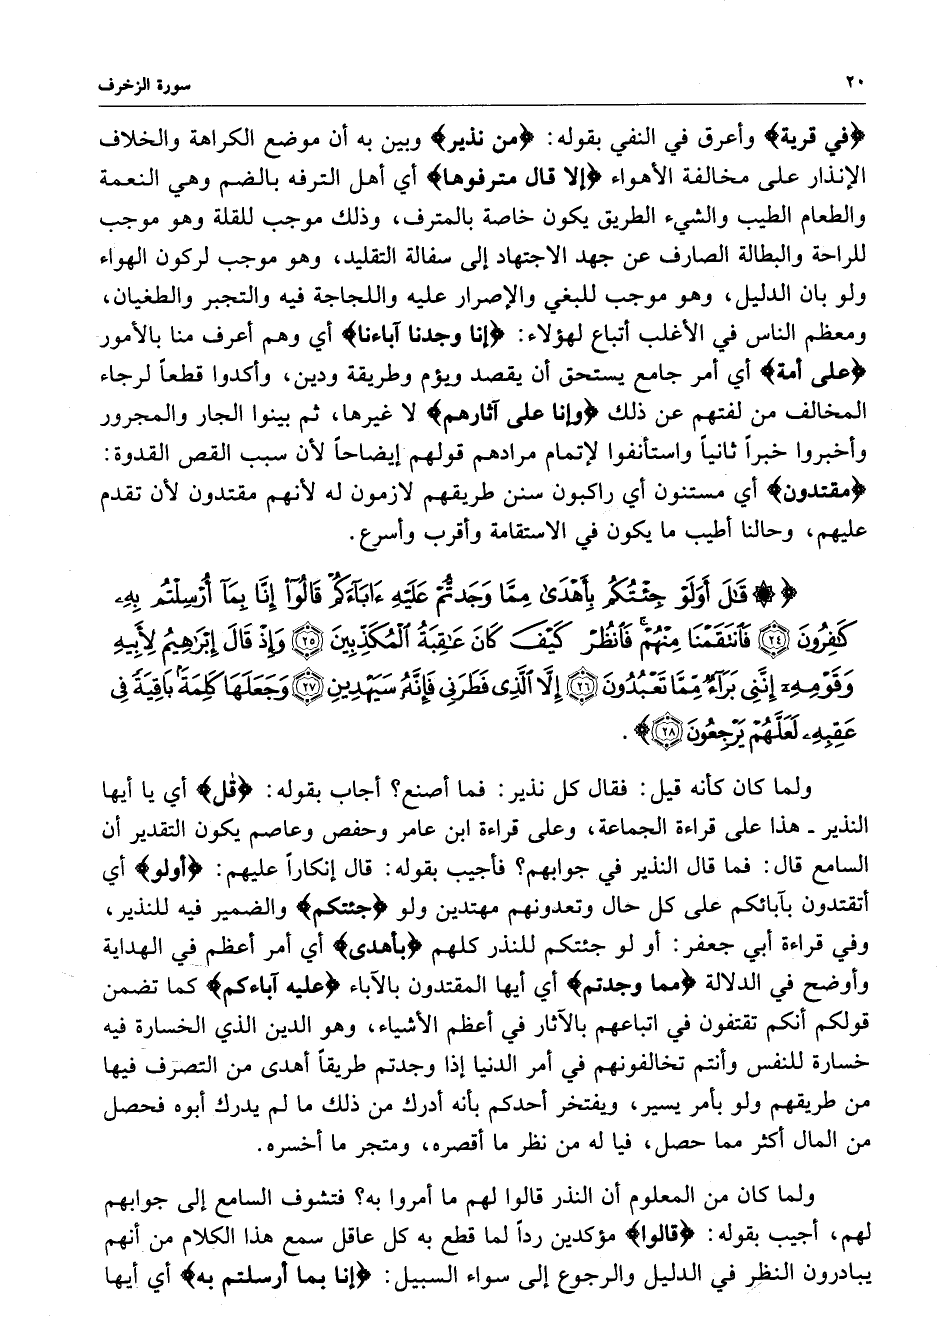 ٢٠ سورة الزخرف
﴿في قرية﴾ وأعرق في النفي بقوله: ﴿من نذير﴾ وبين به أن موضع الكراهة والخلاف
الإنذار على مخالفة الأهواء ﴿إلا قال مترفوها﴾ أي أهل الترفه بالضم وهي النعمة
والطعام الطيب والشيء الطريق يكون خاصة بالمترف، وذلك موجب للقلة وهو موجب
للراحة والبطالة الصارف عن جهد الاجتهاد إلى سفالة التقليد، وهو موجب لركون الهواء
ولو بان الدليل، وهو موجب للبغي والإصرار عليه واللجاجة فيه والتجبر والطغيان،
ومعظم الناس في الأغلب أتباع لهؤلاء: ﴿إنا وجدنا آباءنا﴾ أي وهم أعرف منا بالأمور
﴿على أمة﴾ أي أمر جامع يستحق أن يقصد ويؤم وطريقة ودين، وأكدوا قطعاً لرجاء
المخالف من لفتهم عن ذلك ﴿وإنا على آثارهم﴾ لا غيرها، ثم بينوا الجار والمجرور
وأخبروا خبراً ثانياً واستأنفوا لإتمام مرادهم قولهم إيضاحاً لأن سبب القص القدوة:
﴿مقتدون﴾ أي مستنون أي راكبون سنن طريقهم لازمون له لأنهم مقتدون لأن تقدم
عليهم، وحالنا أطيب ما يكون في الاستقامة وأقرب وأسرع.
﴿ ۞ قَـٰلَ أَوَلَوْ جِئْتُكُم بِأَهْدَىٰ مِمَّا وَجَدتُّمْ عَلَيْهِ ءَابَآءَكُمْ قَالُوٓا۟ إِنَّا بِمَآ أُرْسِلْتُم بِهِۦ
كَـٰفِرُونَ ﴿٢٤﴾ فَٱنتَقَمْنَا مِنْهُمْ ۖ فَٱنظُرْ كَيْفَ كَانَ عَـٰقِبَةُ ٱلْمُكَذِّبِينَ ﴿٢٥﴾ وَإِذْ قَالَ إِبْرَٰهِيمُ لِأَبِيهِ
وَقَوْمِهِۦٓ إِنَّنِى بَرَآءٌ مِّمَّا تَعْبُدُونَ ﴿٢٦﴾ إِلَّا ٱلَّذِى فَطَرَنِى فَإِنَّهُۥ سَيَهْدِينِ ﴿٢٧﴾ وَجَعَلَهَا كَلِمَةًۢ بَاقِيَةً فِى
عَقِبِهِۦ لَعَلَّهُمْ يَرْجِعُونَ ﴿٢٨﴾ ﴾.
ولما كان كأنه قيل: فقال كل نذير: فما أصنع؟ أجاب بقوله: ﴿قُل﴾ أي يا أيها
النذير ـ هذا على قراءة الجماعة، وعلى قراءة ابن عامر وحفص وعاصم يكون التقدير أن
السامع قال: فما قال النذير في جوابهم؟ فأجيب بقوله: قال إنكاراً عليهم: ﴿أولو﴾ أي
أتقتدون بآبائكم على كل حال وتعدونهم مهتدين ولو ﴿جئتكم﴾ والضمير فيه للنذير،
وفي قراءة أبي جعفر: أو لو جئتكم للنذر كلهم ﴿بأهدى﴾ أي أمر أعظم في الهداية
وأوضح في الدلالة ﴿مما وجدتم﴾ أي أيها المقتدون بالآباء ﴿عليه آباءكم﴾ كما تضمن
قولكم أنكم تقتفون في اتباعهم بالآثار في أعظم الأشياء، وهو الدين الذي الخسارة فيه
خسارة للنفس وأنتم تخالفونهم في أمر الدنيا إذا وجدتم طريقاً أهدى من التصرف فيها
من طريقهم ولو بأمر يسير، ويفتخر أحدكم بأنه أدرك من ذلك ما لم يدرك أبوه فحصل
من المال أكثر مما حصل، فيا له من نظر ما أقصره، ومتجر ما أخسره.
ولما كان من المعلوم أن النذر قالوا لهم ما أمروا به؟ فتشوف السامع إلى جوابهم
لهم، أجيب بقوله: ﴿قالوا﴾ مؤكدين رداً لما قطع به كل عاقل سمع هذا الكلام من أنهم
يبادرون النظر في الدليل والرجوع إلى سواء السبيل: ﴿إنا بما أرسلتم به﴾ أي أيها